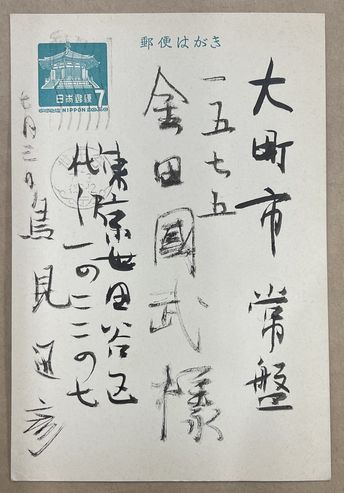 郵便はがき
日本郵便
NIPPON
7
大町市常盤
一五七五
金田國武様
東京世田谷区
代田一の二二の七
鳥見迅彦
七月三日